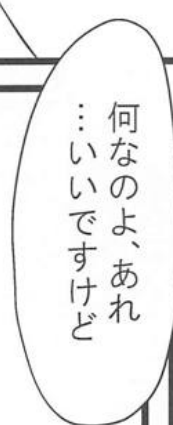 何なのよ、あれ
…いいですけど